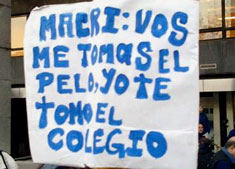 MACRI: VOS
ME TOMAS EL
PELO, YO TE
TOMO EL
COLEGIO